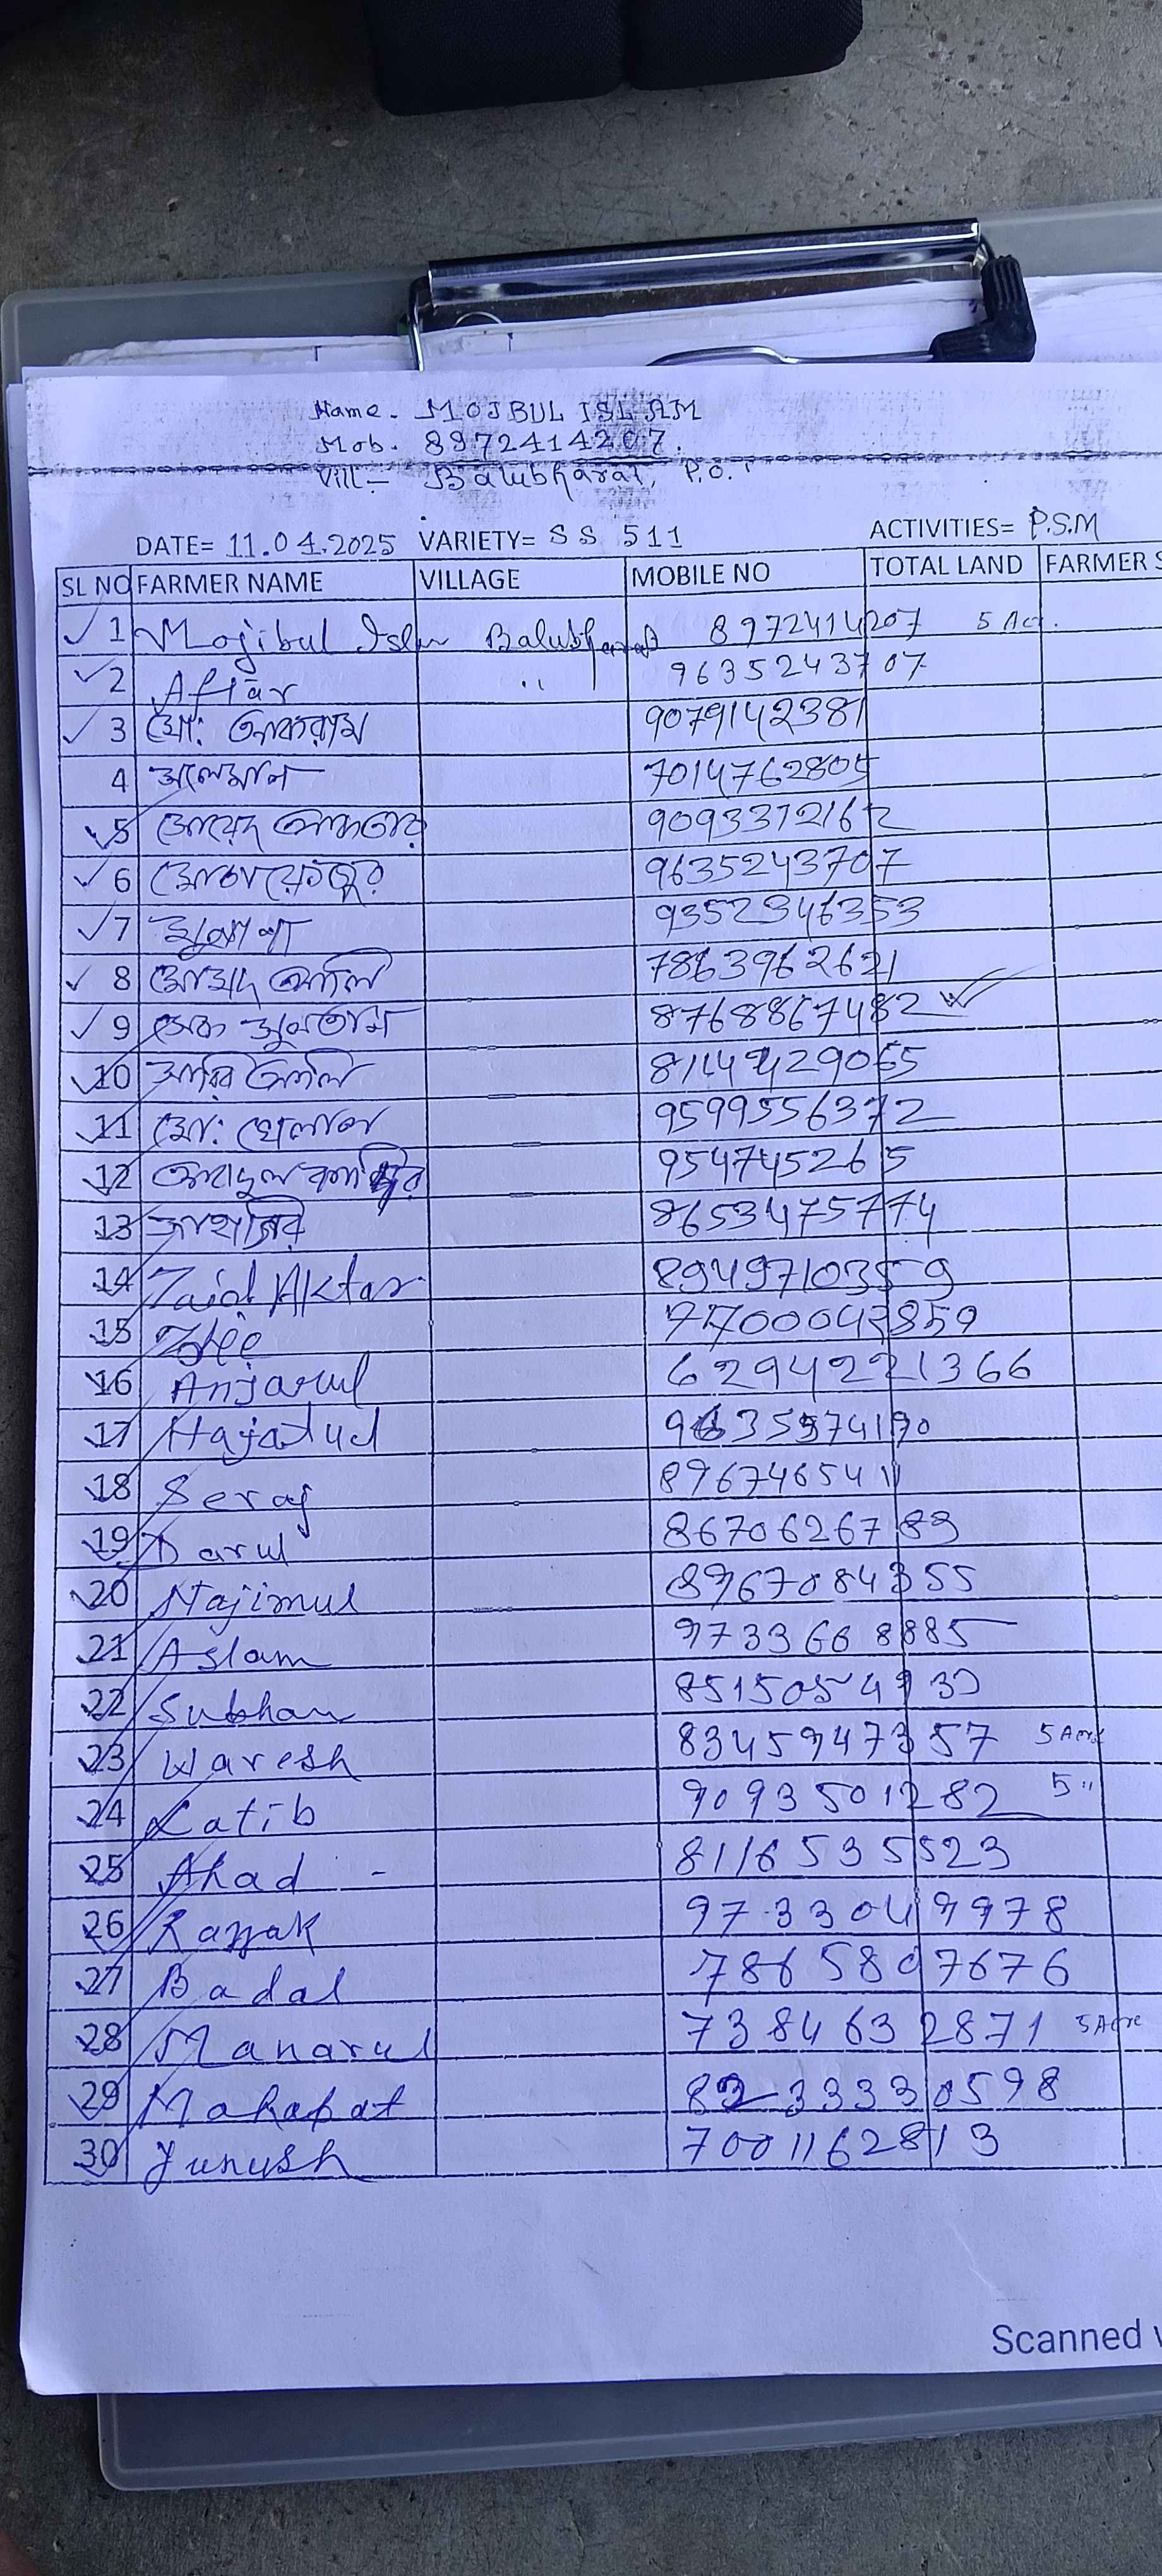 Name. MOJBUL ISLAM
Mob. 8972414207.
Vill- Balubharat, P.O.
DATE= 11.04.2025 VARIETY= SS 511 ACTIVITIES= P.S.M
SL NO FARMER NAME VILLAGE MOBILE NO TOTAL LAND FARMER S
1 Mojibul Balubharat 8972414207 5
2 Aftar " 9635243707
3 মো: আকরাম 9079142381
4 7014762805
5 আকতার 9093372162
6 9635243707
7 9352346353
8 আলি 7863962621
9 সেক সুলতান 8768867482
10 আলি
11 মো: হেলাল 9599556372
12 9547452615
13 8653475774
14 Zaid Aktar 8949710359
15
16 Anjarul 62942221366
17
18 Seraj
19 Darul 8670626783
20 Najimul 8967084355
21 Aslam 9733668885
22 Subhan
23 Waresh 8345947357 5
24 Latib 9093501282 5 "
25 Ahad - 8116535523
26 Razzak 9733049978
27 Badal 7865807676
28 Manarul 7384632871 5 Acre
29 Mahabat
30 Yunush 7001162813
Scanned